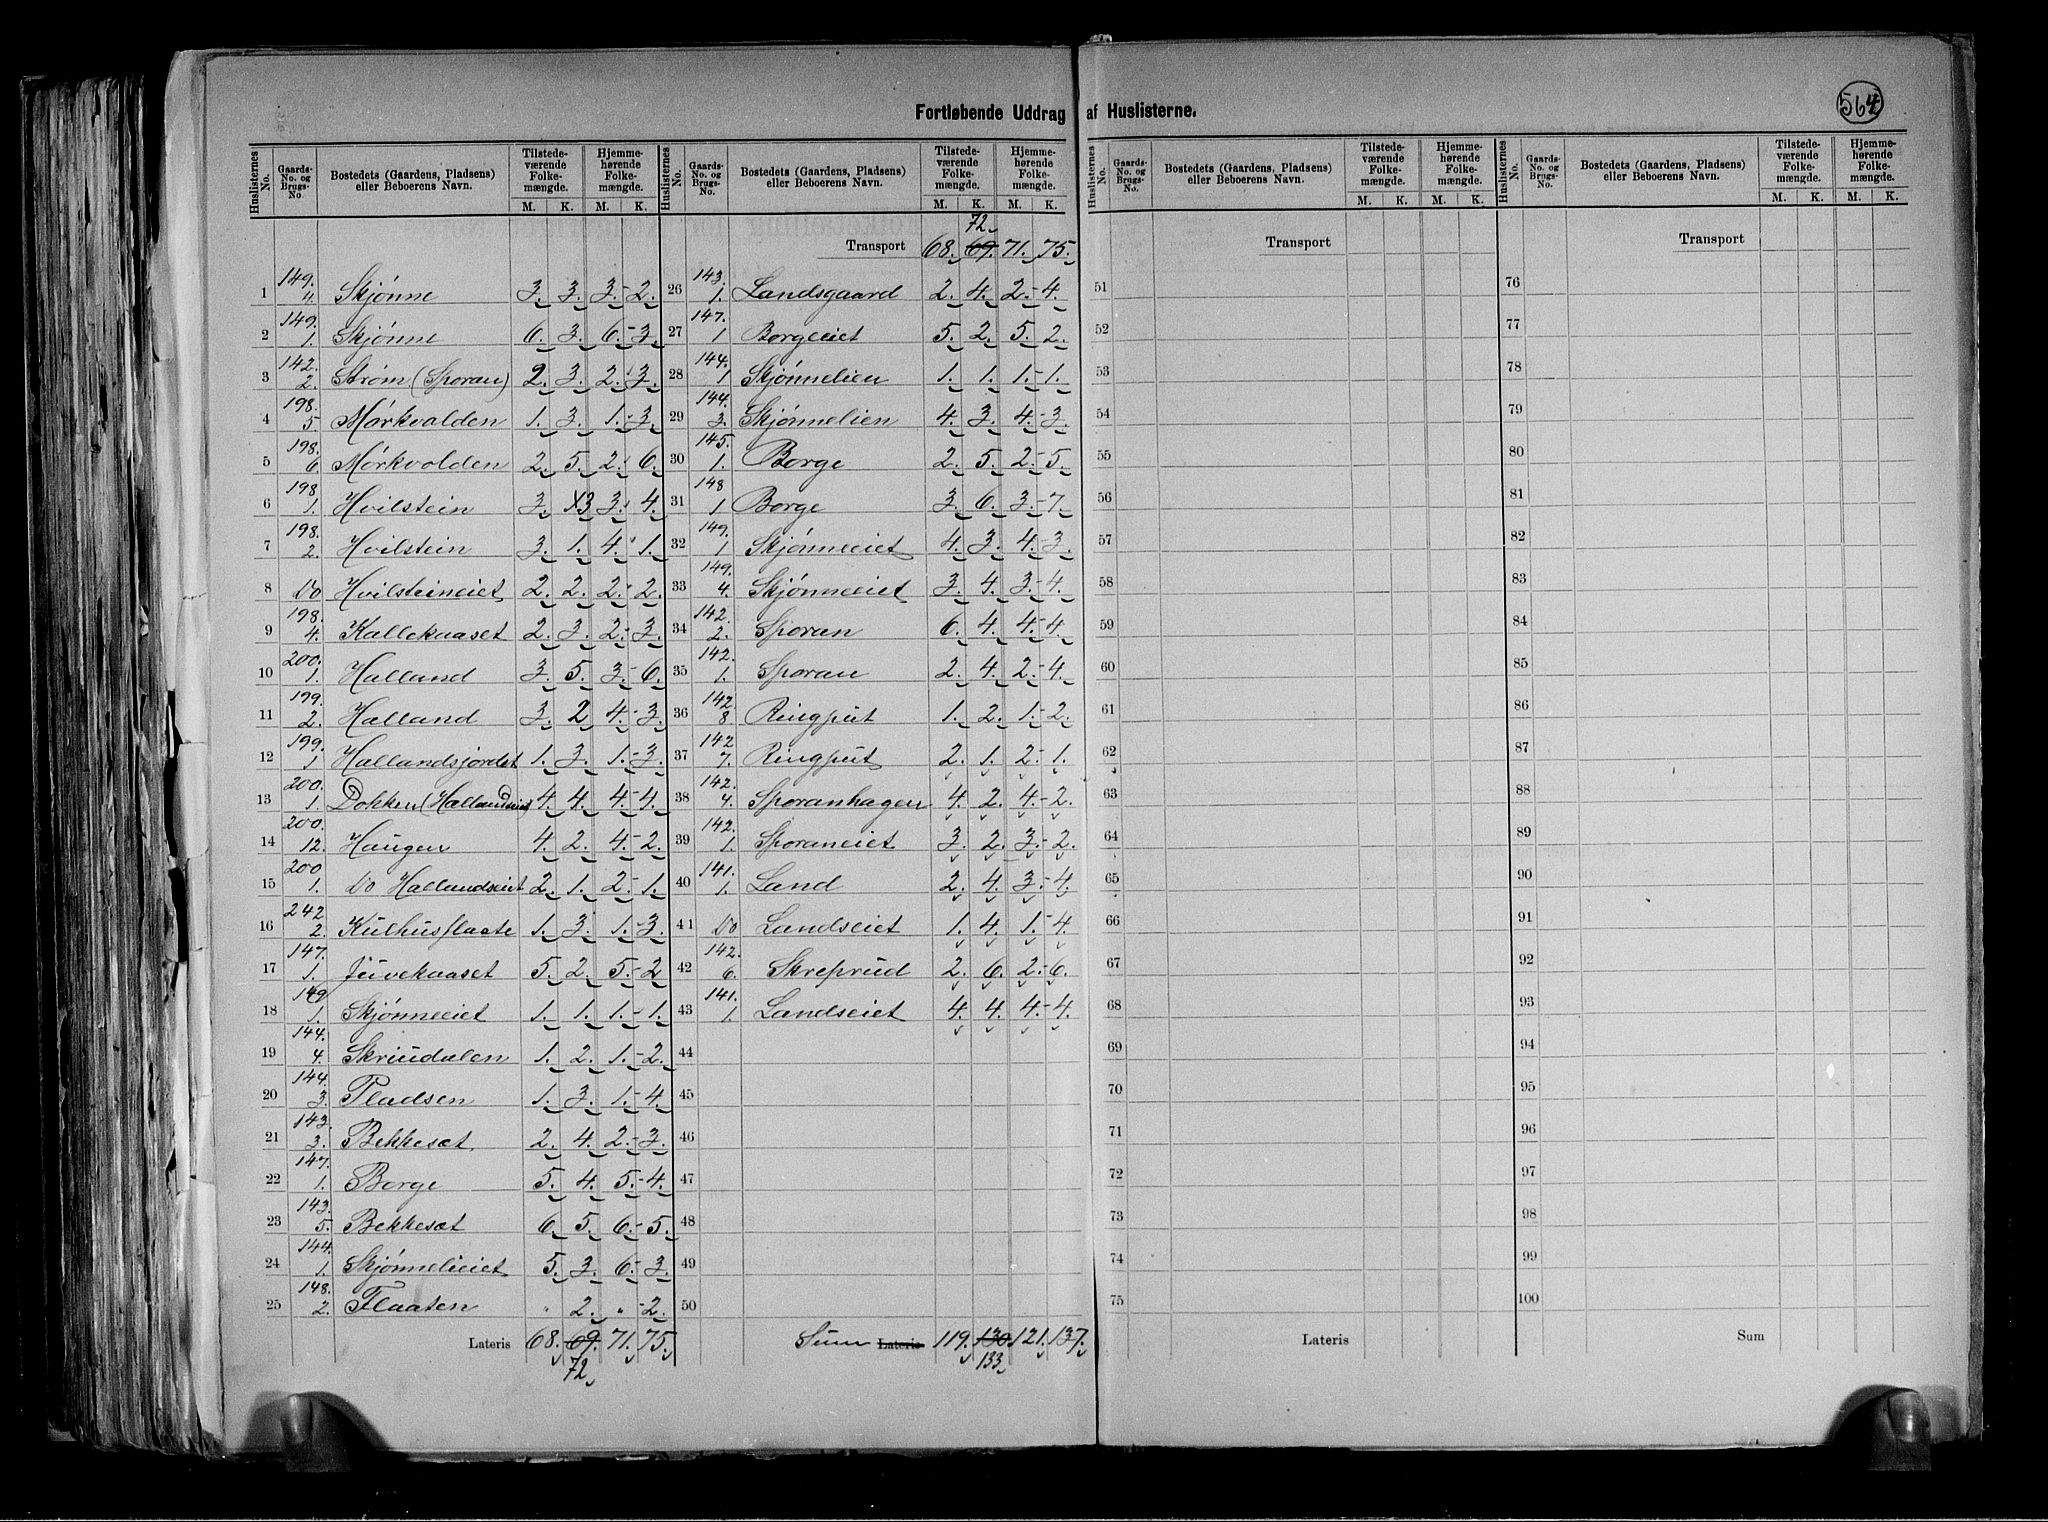 Fortløbende Uddrag af Huslisterne.
564
Huslisternes No. | Gaards-No. og Brugs-No. | Bostedets (Gaardens, Pladsens) eller Beboerens Navn. | Tilstedeværende Folkemængde. M. K. | Hjemmehørende Folkemængde. M. K.
1 149. 4. Skjønne 3. 3. 3. 2.
2 149. 1. Skjønne 6. 3. 6. 3.
3 142. 2. Strøm (Sporan) 2. 3. 2. 3.
4 198. 5 Mørkvolden 1. 3. 1. 3.
5 198. 6 Mørkvolden 2. 5. 2. 6.
6 198. 1. Hvilstein 3. 3 3. 4.
7 198. 2. Hvilstein 3. 1. 4. 1.
8 Do Hvilsteineiet 2. 2. 2. 2.
9 198. 4. Kallekaaset 2. 3. 2. 3.
10 200. 1. Halland 3. 5. 3. 6.
11 199. 2. Halland 3. 2 4. 3.
12 199. 1 Hallandsjordet 1. 3. 1. 3.
13 200. 1. Dokken (Hallandseiet) 4. 4. 4. 4.
14 200. 12. Haugen 4. 2. 4. 2.
15 200 1. Do Hallandseiet 2. 1. 2. 1.
16 242. 2. Kulhusflaate 1. 3. 1. 3.
17 147. 1. Juvekaaset 5. 2. 5. 2
18 149 1. Skjønneeiet 1. 1. 1. 1.
19 144. 4. Skriudalen 1. 2. 1. 2.
20 144. 3. Pladsen 1. 3. 1. 4.
21 143. 3. Bekkesæt. 2. 4. 2. 3.
22 147. 1. Borge 5. 4. 5. 4.
23 143. 5. Bekkesæt 6. 5. 6. 5.
24 144. 1. Skjønnelieiet 5. 3. 6. 3.
25 148. 2. Flaaten " 2. " 2.
Lateris 68. 69. 71. 75.
72
Huslisternes No. | Gaards-No. og Brugs-No. | Bostedets (Gaardens, Pladsens) eller Beboerens Navn. | Tilstedeværende Folkemængde. M. K. | Hjemmehørende Folkemængde. M. K.
72
Transport 68. 69. 71. 75.
26 143. 1. Landsgaard 2. 4. 2. 4.
27 147. 1 Borgeeiet 5. 2. 5. 2.
28 144. 1 Skjønnelien 1. 1. 1. 1.
29 144. 3. Skjønnelien 4. 3. 4. 3.
30 145. 1. Borge 2. 5. 2. 5.
31 148 1 Borge 3. 6. 3. 7.
32 149. 1 Skjønneeiet 4. 3. 4. 3.
33 149. 4. Skjønneeiet 3. 4. 3. 4.
34 142. 2. Sporan 6. 4. 4. 4.
35 142. 1. Sporan 2. 4. 2. 4.
36 142. 8 Ringput 1. 2. 1. 2.
37 142 7. Ringput 2. 1. 2. 1.
38 142. 4. Sporanhagen 4. 2. 4. 2.
39 142. 1. Sporaneiet 3. 2. 3. 2.
40 141. 1. Land 2. 4. 3. 4.
41 Do Landseiet 1. 4. 1. 4.
42 142. 6. Skreprud 2. 6. 2. 6.
43 141. 1. Landseiet 4. 4. 4. 4.
44
45
46
47
48
49
50
Sum Lateris 119. 130. 121. 137.
133
Huslisternes No. | Gaards-No. og Brugs-No. | Bostedets (Gaardens, Pladsens) eller Beboerens Navn. | Tilstedeværende Folkemængde. M. K. | Hjemmehørende Folkemængde. M. K.
Transport
51
52
53
54
55
56
57
58
59
60
61
62
63
64
65
66
67
68
69
70
71
72
73
74
75
Lateris
Huslisternes No. | Gaards-No. og Brugs-No. | Bostedets (Gaardens, Pladsens) eller Beboerens Navn. | Tilstedeværende Folkemængde. M. K. | Hjemmehørende Folkemængde. M. K.
Transport
76
77
78
79
80
81
82
83
84
85
86
87
88
89
90
91
92
93
94
95
96
97
98
99
100
Sum